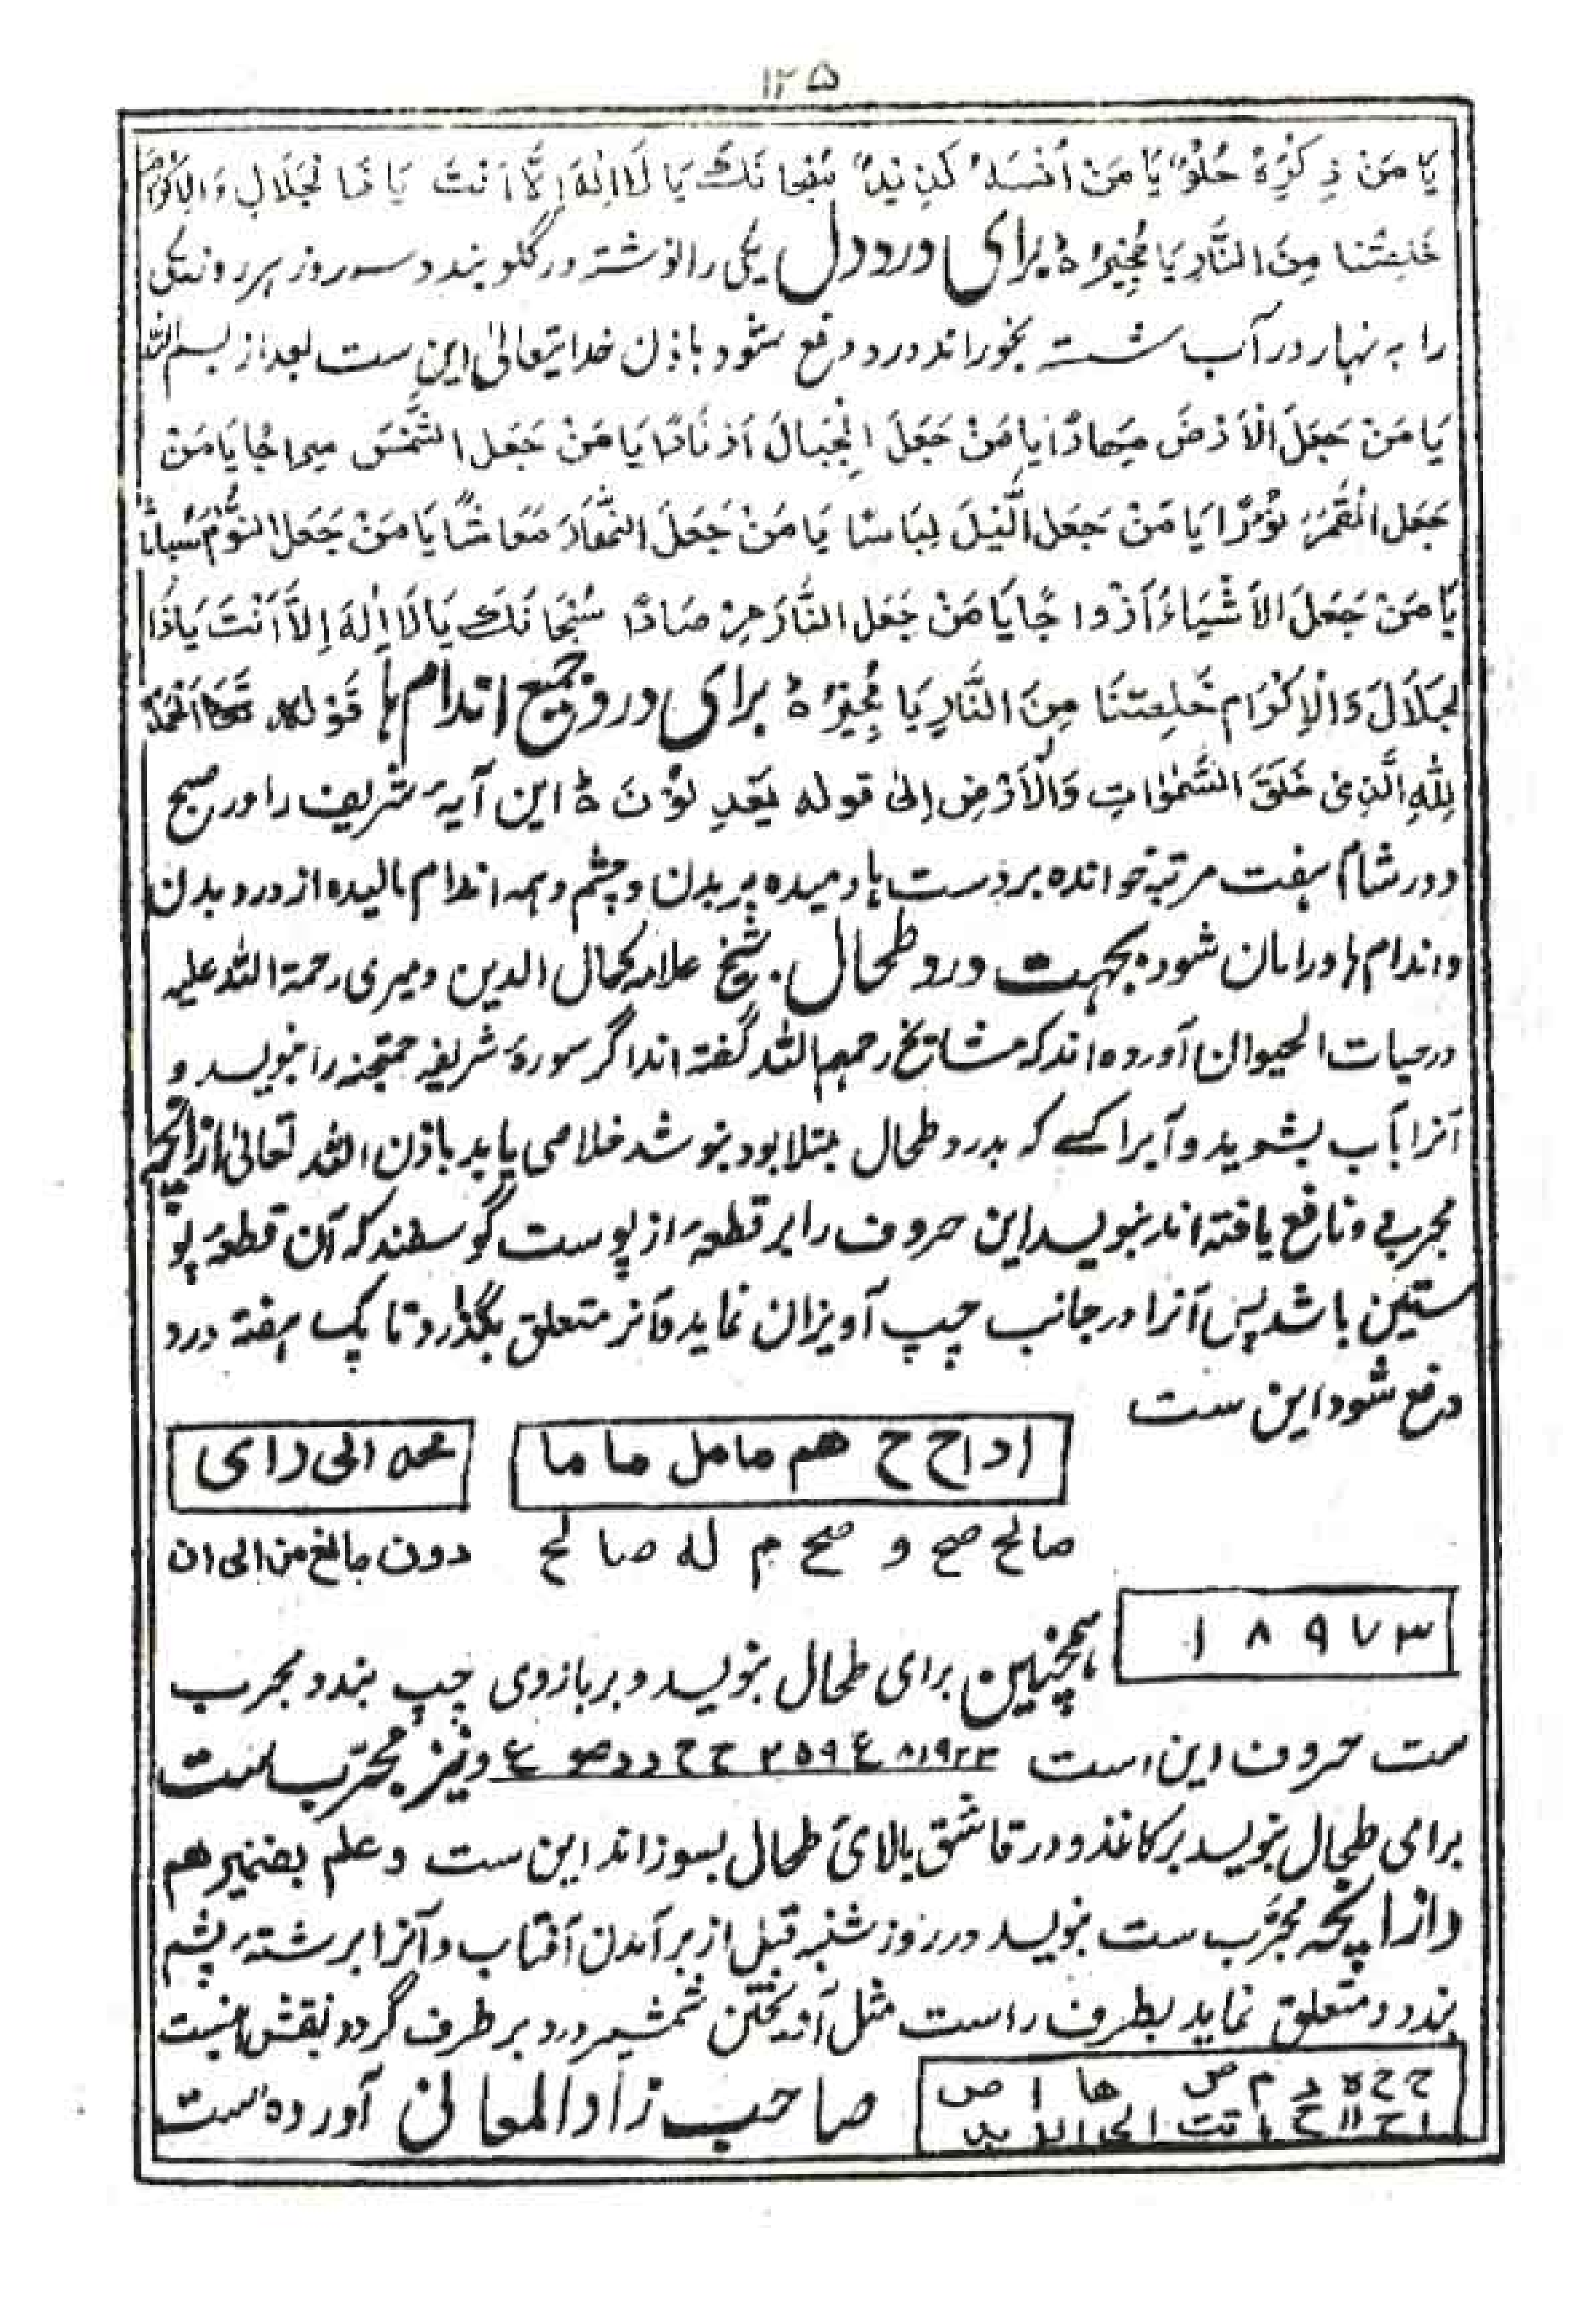 ۱۲۵
يَا مَنْ ذِكْرُهُ حُلْوٌ يَا مَنْ أُنْسُهُ لَذِيذٌ سُبْحَانَكَ يَا لَا إِلٰهَ إِلَّا أَنْتَ يَا ذَا الْجَلَالِ وَالْإِكْرَامِ
خَلِّصْنَا مِنَ النَّارِ يَا مُجِيْرُ ۀ برای درد دل یکی را نوشته در گلو بندد و سه روز هر روز یکی
را به نهار در آب شسته بخوراند درد دفع شود باذن خدایتعالیٰ این ست بعد از بسم الله
يَا مَنْ جَعَلَ الْأَرْضَ مِهَادًا يَا مَنْ جَعَلَ الْجِبَالَ أَوْتَادًا يَا مَنْ جَعَلَ الشَّمْسَ سِرَاجًا يَا مَنْ
جَعَلَ الْقَمَرَ نُوْرًا يَا مَنْ جَعَلَ الَّيْلَ لِبَاسًا يَا مَنْ جَعَلَ النَّهَارَ مَعَاشًا يَا مَنْ جَعَلَ النَّوْمَ سُبَاتًا
يَا مَنْ جَعَلَ الْأَشْيَاءَ أَزْوَاجًا يَا مَنْ جَعَلَ النَّارَ مِرْصَادًا سُبْحَانَكَ يَا لَا إِلٰهَ إِلَّا أَنْتَ يَا ذَا
الْجَلَالِ وَالْإِكْرَامِ خَلِّصْنَا مِنَ النَّارِ يَا مُجِيْرُ ۀ برای درد جمیع اندام ها قوله اَلْحَمْدُ
لِلّٰهِ الَّذِىْ خَلَقَ السَّمٰوٰاتِ وَالْأَرْضِ الیٰ قوله يَعْدِلُوْنَ ۀ این آیهٔ شریف را در صبح
و در شام هفت مرتبه خوانده بر دست ها دمیده بر بدن و چشم و همه اندام مالیده از درد بدن
و اندام ها در امان شود بجهت درد طحال. شیخ علامه کمال الدین دمیری رحمة الله علیه
در حیات الحیوان آورده اند که مشایخ رحمهم الله گفته اند اگر سورهٔ شریفه ممتحنه را بنویسد و
آنرا بآب بشوید و آنرا کسے که بدرد طحال مبتلا بود بنوشد خلاصی یابد باذن الله تعالیٰ از آنچه
مجربے و نافع یافته اند بنویسد این حروف را بر قطعهٔ از پوست گوسفند که آن قطعهٔ پو
ستین باشد پس آنرا در جانب چپ آویزان نماید متعلق بگذارد تا یک هفته درد
دفع شود این ست
اداح ح هم مامل ما ما
محه الی دای
صالح صح و صح م له صالح
دون جالغ من الی ان
۱ ۸ ۹ ۷ ۳
همچنین برای طحال بنویسد و بر بازوی چپ بندد مجرب
ست حروف این است ۸۱۹۲۳ ع ۲۵۹ ح ح د د صو ع و نیز مجرّب است
برای طحال بنویسد بر کاغذ و در قاشق بالائ طحال بسوزاند این ست و علم بضمیر هم
و از آنچه مجرّب ست بنویسد در روز شنبه قبل از برآمدن آفتاب و آنرا بر رشتهٔ پشم
بندد و متعلق نماید بطرف راست مثل آویختن شمشیر درد بر طرف گردد نقش اینست
ح ح ه د م ص ها ا ص
صاحب زاد المعانی آورده ست